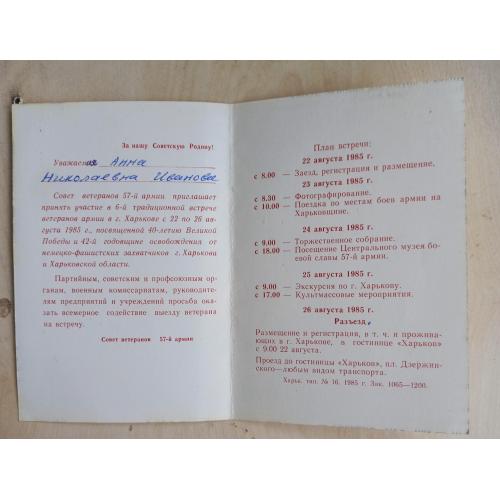 За нашу Советскую Родину!
Уважаемая Анна
Николаевна Иванова
Совет ветеранов 57-й армии приглашает
принять участие в 6-й традиционной встрече
ветеранов армии в г. Харькове с 22 по 26
августа 1985 г., посвященной 40-летию Великой
Победы и 42-й годовщине освобождения от
немецко-фашистских захватчиков г. Харькова
и Харьковской области.
Партийным, советским и профсоюзным ор-
ганам, военным комиссариатам, руководите-
лям предприятий и учреждений просьба ока-
зать всемерное содействие выезду ветерана
на встречу.
Совет ветеранов 57-й армии
План встречи:
22 августа 1985 г.
с 8.00 — Заезд, регистрация и размещение.
23 августа 1985 г.
с 8.30 — Фотографирование.
с 10.00 — Поездка по местам боев армии на
Харьковщине.
24 августа 1985 г.
с 9.00 — Торжественное собрание.
с 18.00 — Посещение Центрального музея бое-
вой славы 57-й армии.
25 августа 1985 г.
с 9.00 — Экскурсия по г. Харькову.
с 17.00 — Культмассовые мероприятия.
26 августа 1985 г.
Разъезд.
Размещение и регистрация, в т. ч. и прожи-
вающих в г. Харькове, в гостинице «Харьков»
с 9.00 22 августа.
Проезд до гостиницы «Харьков», пл. Дзержин-
ского—любым видом транспорта.
Харьк. тип. № 16. 1985 г. Зак. 1065—1200.